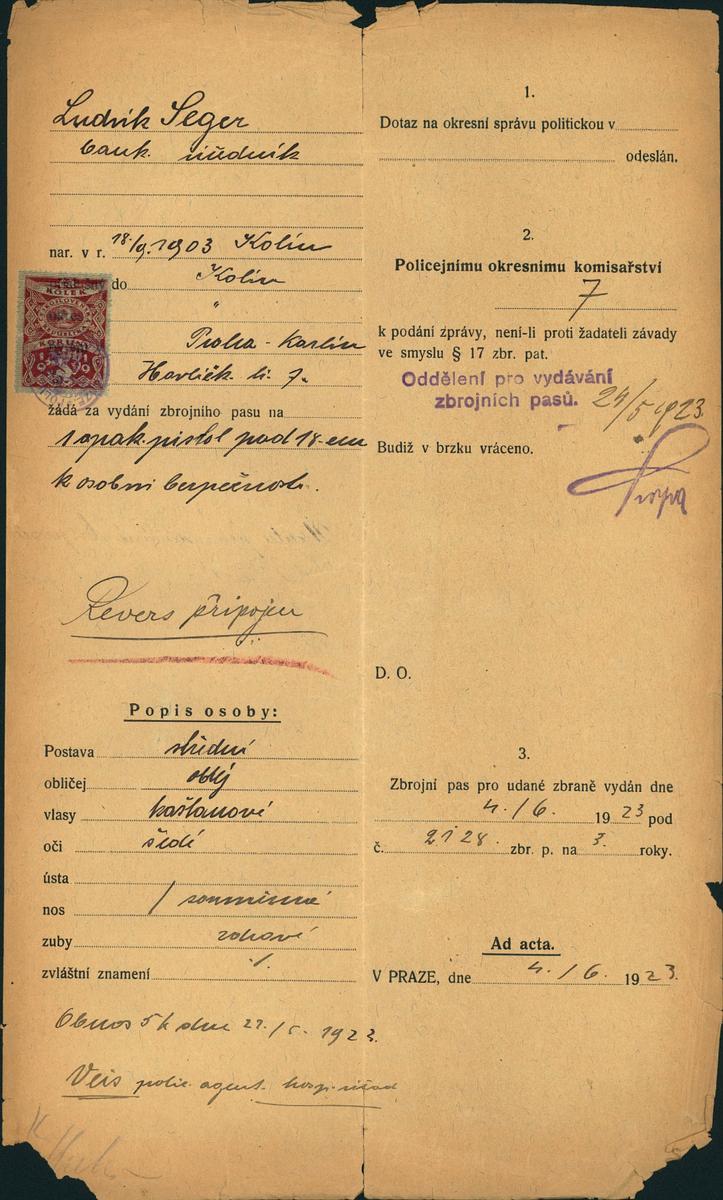 Ludvík Seger
bank. úředník
nar. v r. 18./9. 1903 Kolín
do Kolín
"
Praha - Karlín
Havlíčk. 7.
žádá za vydání zbrojního pasu na
1 opak. pistol pod 18 cm
k osobní bezpečnosti.
Revers připojen
Popis osoby:
Postava střední
obličej oblý
vlasy kaštanové
oči šedé
ústa
nos / souměrné
zuby zdravé
zvláštní znamení ·/·
Obnos 5 K dne 1923.
Veis polic. agent.
1.
Dotaz na okresní správu politickou v
odeslán.
2.
Policejnímu okresnímu komisařství
7
k podání zprávy, není-li proti žadateli závady
ve smyslu § 17 zbr. pat.
Oddělení pro vydávání
zbrojních pasů. 24/5 1923.
Budiž v brzku vráceno.
D. O.
3.
Zbrojní pas pro udané zbraně vydán dne
4./6. 1923 pod
č. 2128. zbr. p. na 3. roky.
Ad acta.
V PRAZE, dne 4./6. 1923.